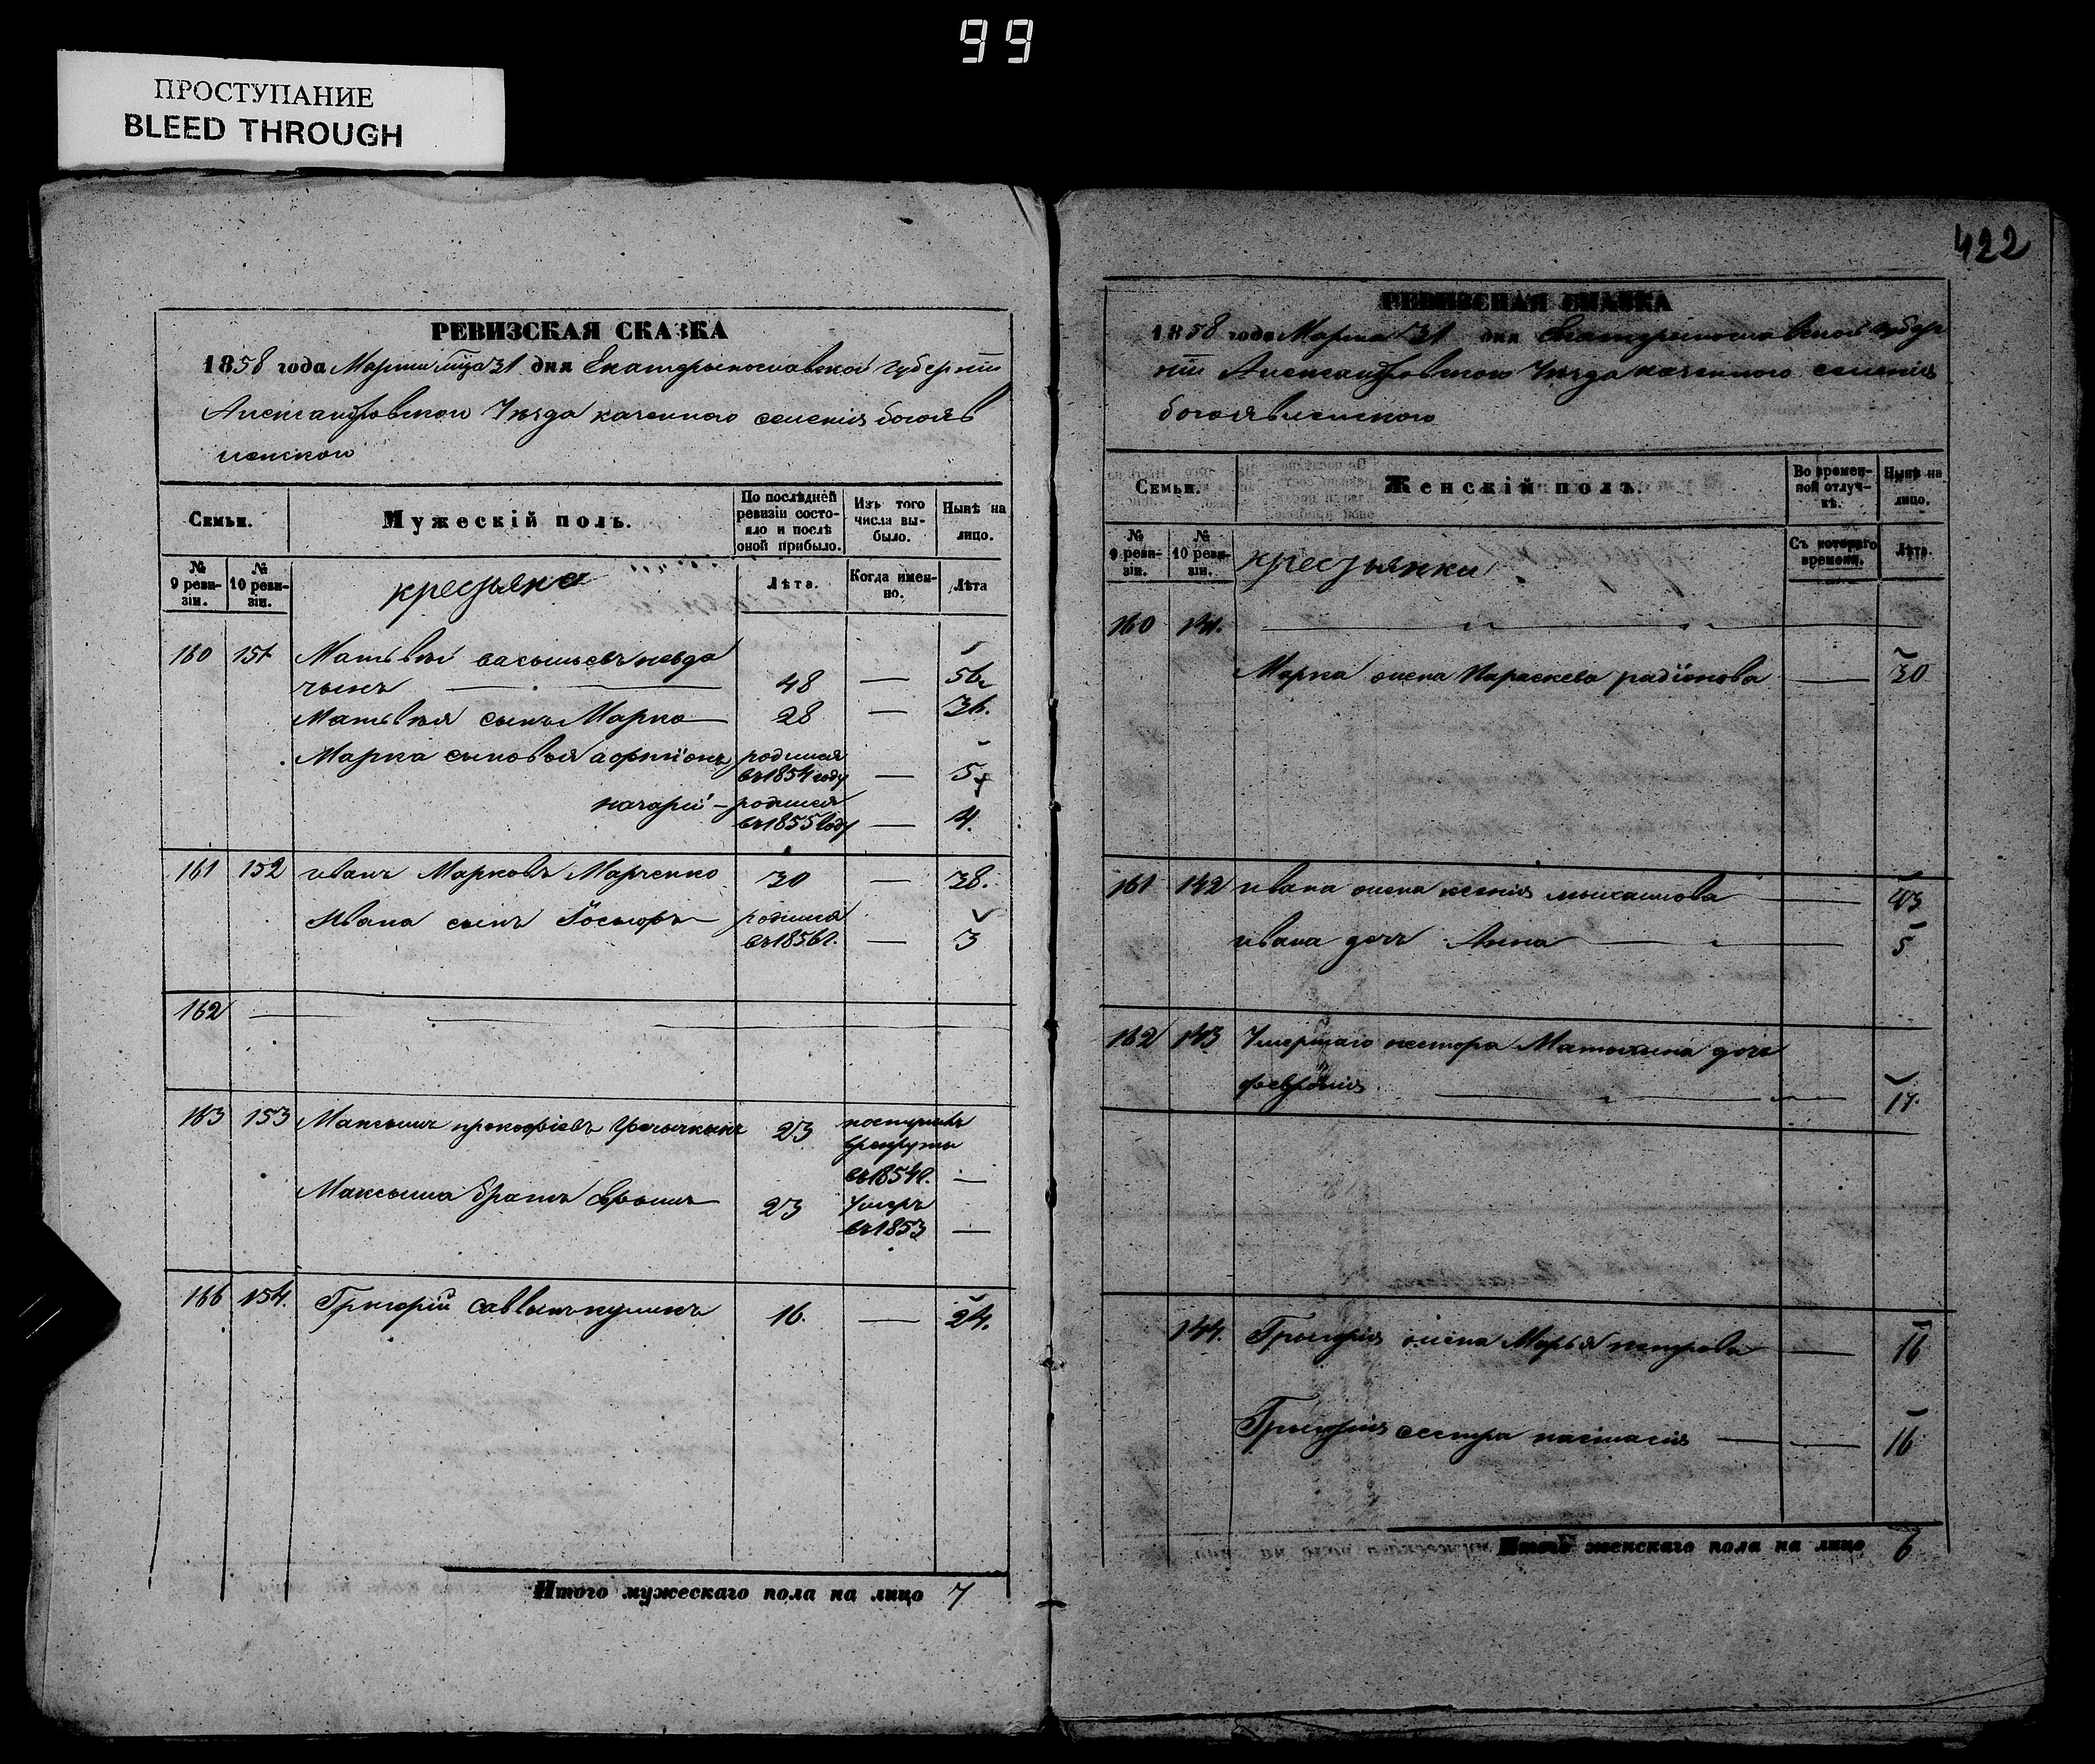 99
ПРОСТУПАНИЕ
BLEED THROUGH
РЕВИЗСКАЯ СКАЗКА
1858 года Марта 31 дня Екатерынославской губерніи
Александровскои Уезда казенного селенія богояв
ленского
Семьи.
Мужескій полъ.
По послѣдней ревизіи состояло и послѣ оной прибыло.
Изъ того числа выбыло.
Нынѣ на лицо.
№ 9 ревизіи.
№ 10 ревизіи.
крестьяне
Лѣта.
Когда именно.
Лѣта
160 151 Матьвѣй васыльевъ невда
чынъ 48 — 56
Матьвѣя сынъ Марко 28 — 36.
Марка сыновья родился
въ 1854 году — 5
назарій - родился
въ 1855 году — 4.
161 152 иванъ Марковъ Марченко 30 — 38.
Ивана сынъ родился
въ 1856 г. — 3
162 —
163 153 Максымъ прокофіевъ 23 поступилъ
врекруты
въ 1854 г. —
Максыма братъ 23 Умеръ
въ 1853 —
166 154. Григорій 16. — 24.
Итого мужескаго пола на лицо 7
422
РЕВИЗСКАЯ СКАЗКА
1858 года Марта 31 дня Екатерынославской губер
ніи Александровскои Уезда казенного селенія
богоявленского
Семьи.
Женскій полъ.
Во временной отлучкѣ.
Нынѣ на лицо.
№ 9 ревизіи.
№ 10 ревизіи.
крестьянки
Съ котораго времени.
Лѣта.
160 141.
Марка жена Параскева радіонова — 30
161 142 ивана жена ксенія мыхаилова — 43
ивана дочь Анна — 5
162 143 Умершаго нестора дочь
февронія — 17.
144. Грыгорія жена Марья петрова — 16
Грыгорія сестра настасія — 16
Итого женскаго пола на лицо 6